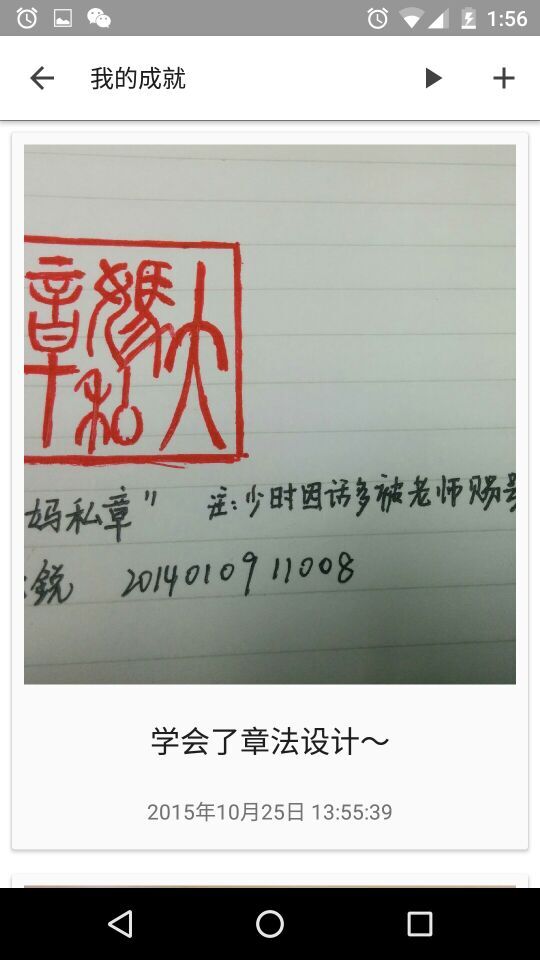 1:56
我的成就
大媽私章
妈私章” 注:少时因话多被老师赐号
銳 20140109 11008
学会了章法设计～
2015年10月25日 13:55:39